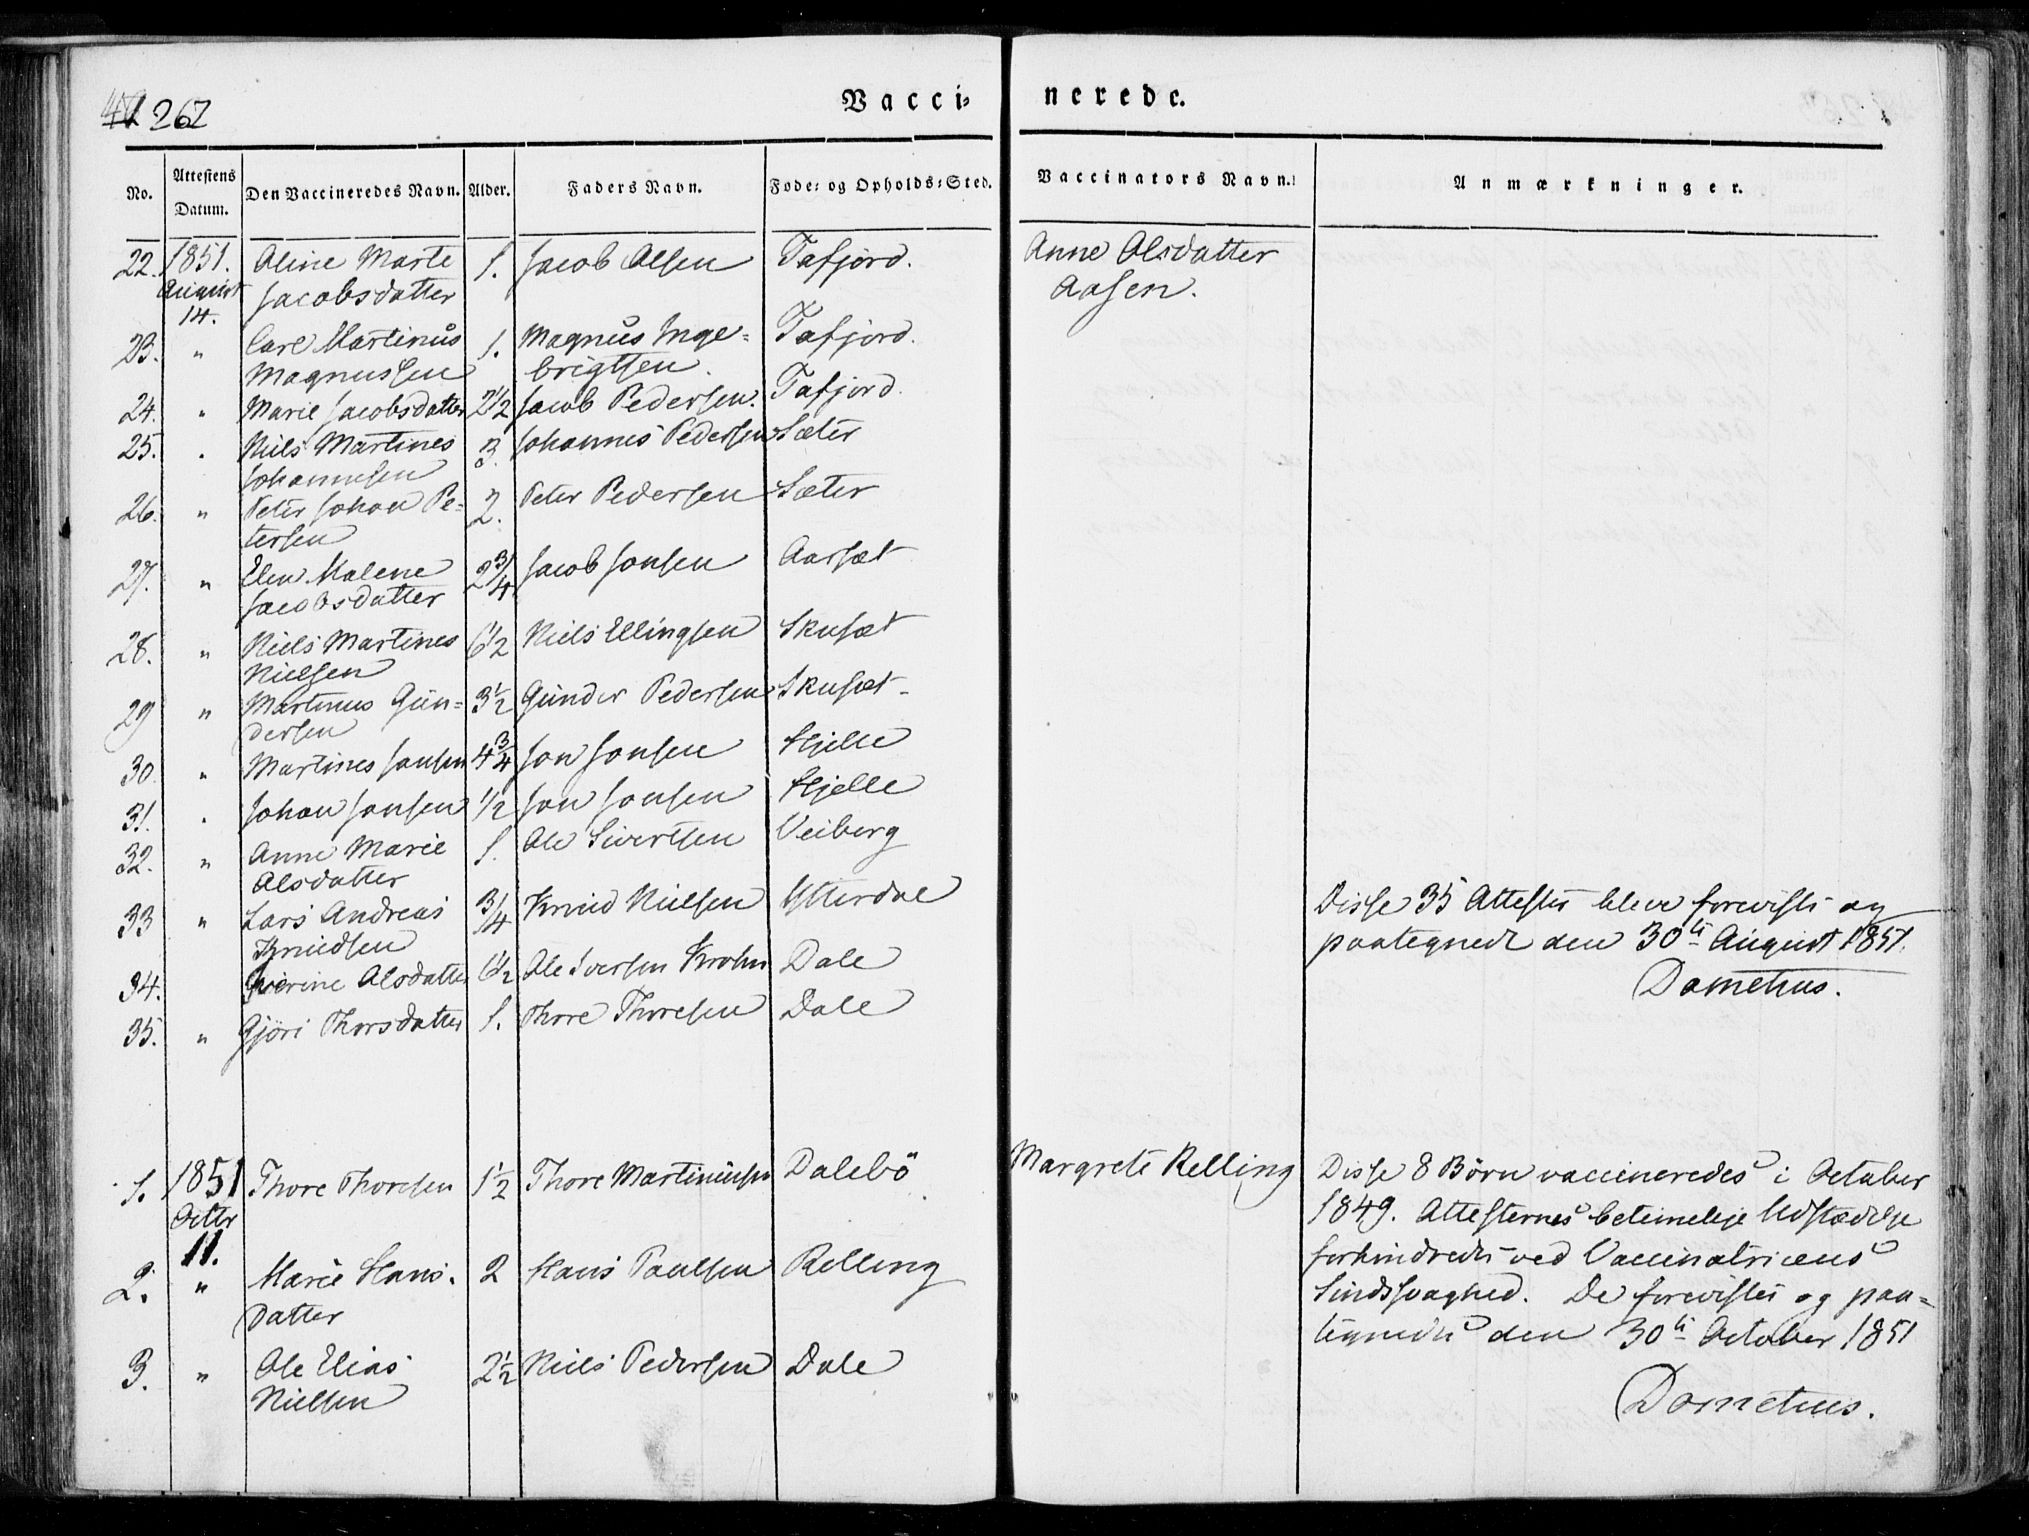 262
Vacci-
nerede.
No.
Attestens Datum.
Den Vaccineredes Navn.
Alder.
Faders Navn.
Føde- og Opholds-Sted.
Vaccinators Navn.
Anmærkninger.
22. 1851. Aline Marte 1. Jacob Olsen Tafjord. Anne Olsdatter
August Jacobsdatter Aasen.
14.
23. " Carl Martinus 1. Magnus Inge- Tafjord.
Magnussen brigtsen.
24. " Marie Jacobsdatter 2 1/2 Jacob Pedersen. Tafjord.
25. " Niels Martines 3. Johannes Pedersen Sæter
Johannesen
26. " Peter Johan Pe- 2. Peter Pedersen Sæter
tersen
27. " Elen Malene 2 3/4 Jacob Jonsen Aarsæt
Jacobsdatter
28. " Niels Martines 6 1/2 Niels Ellingsen Skusæt
Nielsen
29 " Martinus Gün- 3 1/2 Günder Pedersen Skusæt
dersen
30 " Martines Jonsen 4 3/4 Jon Jonsen Hjelle
31. " Johan Jonsen 1/2 Jon Jonsen Hjelle
32. " Anne Marie 1. Ole Sivertsen Veiberg
Olsdatter
33 " Lars Andreas 3/4 Knud Nielsen Ytterdal
Knudsen
Disse 35 Attester bleve foreviste og
paategnede den 30te August 1851.
Dometius.
34. Olsdatter 6 1/2 Ole Iversen Krohn Dale
35. " Gjøri Thorsdatter 1. Thore Thoresen Dale
1. 1851 Thore Thoresen 1 1/2 Thore Martinusen Dalebö Margrete Relling
Octbr
11.
2. " Marie Hans- 2 Hans Paulsen Relling
datter
3. " Ole Elias 2 1/2 Niels Pedersen Dale
Nielsen
Disse 8 Børn vaccineredes i October
1849. Attesternes betimelige Udstædelse
forhindredes ved Vaccinatricens
Sindssvaghed. De forevistes og paa-
tegnedes den 30te October 1851
Dometius.